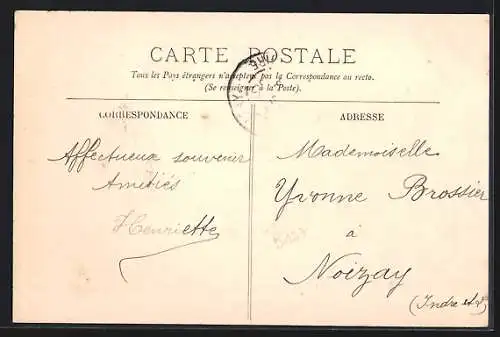 CARTE POSTALE
Tous les Pays étrangers n'acceptent pas la Correspondance au recto.
(Se renseigner à la Poste).
CORRESPONDANCE
Affectueux souvenir
Amitiés
Henriette
ADRESSE
Mademoiselle
Yvonne Brossier
à
Noizay
(Indre et L)